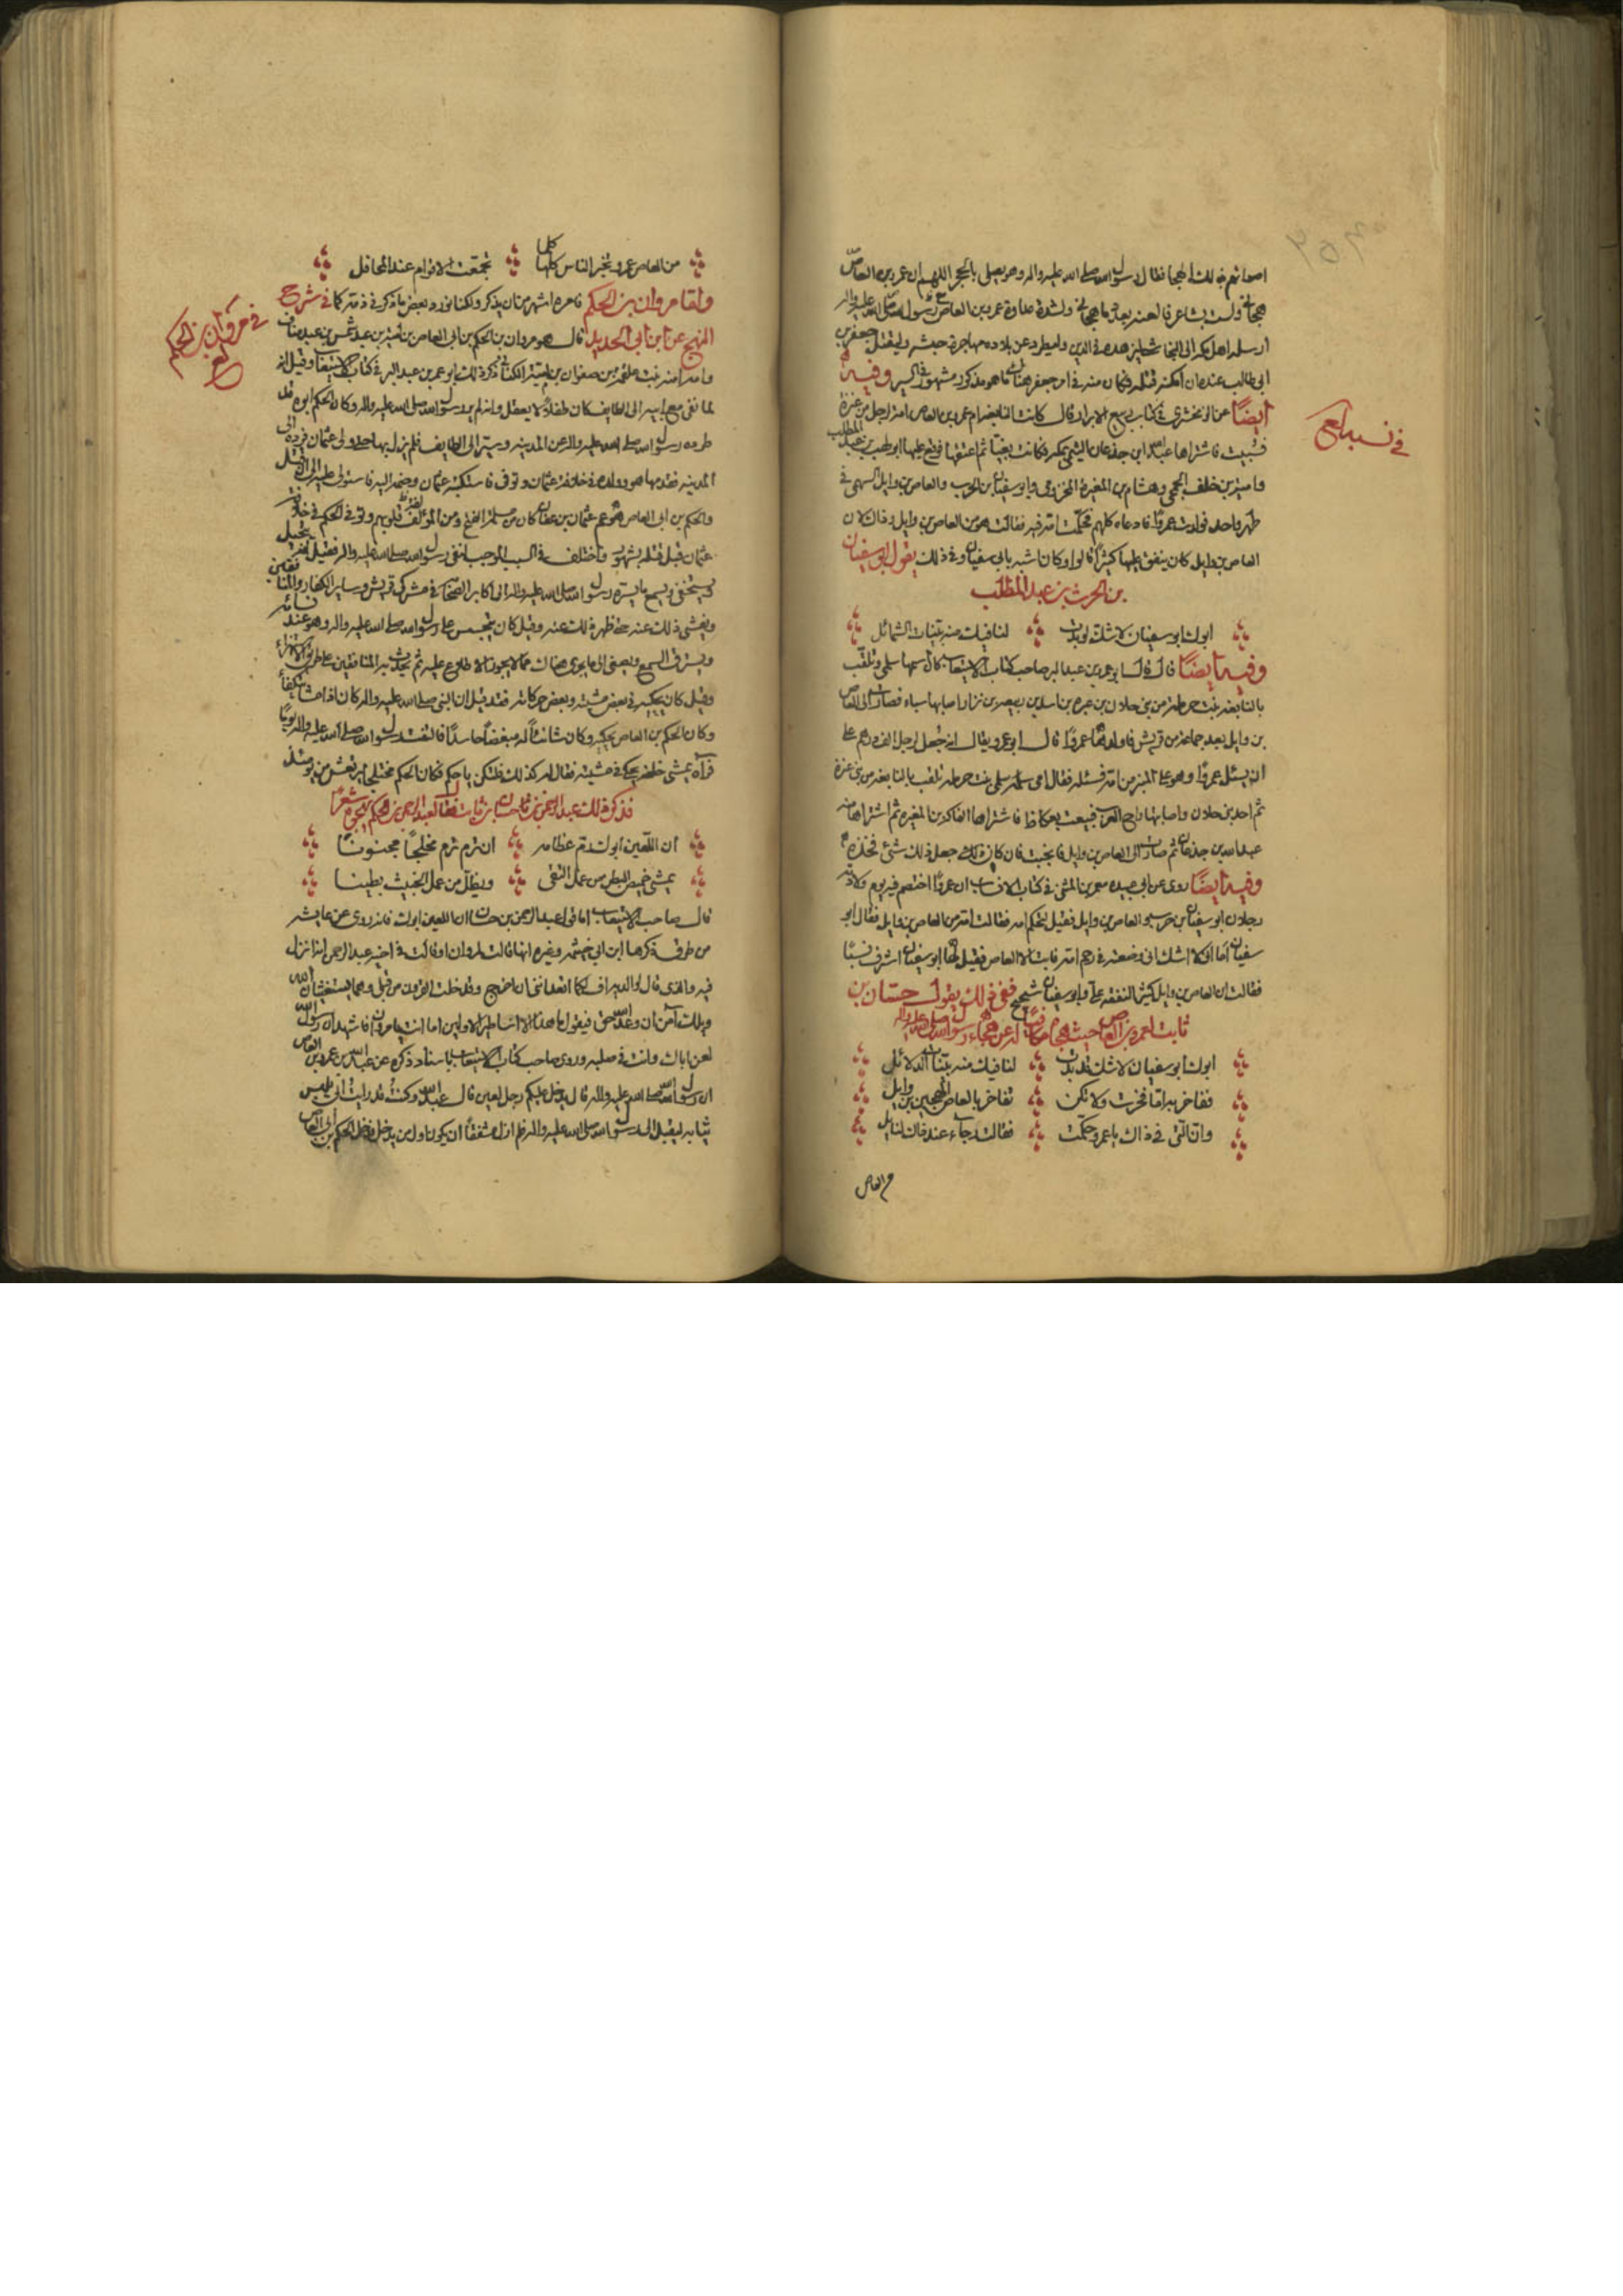 اصواتهم بذلك الهجا فقال رسول الله صلى الله عليه واله وهو يصلى بالحجر اللهم ان عمرو بن العاص
هجانى ولست بشاعر فالعنه بعدد ما هجانى ولشدة عداوة عمرو بن العاص رسول الله صلى الله عليه واله
ارسله اهل مكة الى النجاشى ليزهده فى الدين وليطرد عن بلاده مهاجرة حبشة وليقتل جعفر بن
ابى طالب عنده ان امكنه قتله فكان منه فى امر جعفر هناك ما هو مذكور مشهور فى السير وفيه
ايضًا عن الزمخشرى فى كتاب ربيع الابرار قال كانت النابغة ام عمرو بن العاص امة لرجل من عنزة
فسبيت فاشتراها عبد الله ابن جذعان التيمى بمكة فكانت بغيًا ثم اعتقها فوقع عليها ابو لهب بن عبد المطلب
وامية بن خلف الجمحى وهشام بن المغيرة المخزومى وابو سفيان بن الحرب والعاص بن وايل السهمى فى
طهر واحد فولدت عمروًا فادعاه كلهم فحكمت امه فيه فقالت هو من العاص بن وايل وذلك لان
العاص بن وايل كان ينفق عليها كثيرًا قالوا وكان اشبه بابى سفيان وفى ذلك يقول ابو سفيان
بن الحرث بن عبد المطلب
ابوك ابو سفيان لا شك قد بدت لنا فيك منه بينات الشمائل
وفيه ايضًا قال قال ابو عمر بن عبد البر صاحب كتاب الاستيعاب كان اسمها سلمى وتلقب
بالنابغة بنت حرملة من بنى جلان بن عنزة بن اسد بن ربيعه بن نزار اصابها سباء فصارت الى العاص
بن وايل بعد جماعة من قريش فاولدها عمروًا قال ابو عمر ويقال انه جعل لرجل الف درهم على
ان يسئل عمروًا وهو على المنبر من امه فسئله فقال امى سلمى بنت حرملة تلقب بالنابغة من بنى عنزة
ثم احد بنى جلان واصابتها رماح العرب فبيعت بعكاظ فاشتراها الفاكه بن المغيره ثم اشتراها منه
عبد الله بن جذعان ثم صارت الى العاص بن وايل فانجبت فان كان ذلك جعل لك شئ فخذه
وفيه ايضًا روى عن ابى عبيده معمر بن المثنى فى كتاب الانساب ان عمروًا اختصم فيه يوم ولادته
رجلان ابو سفيان بن حرب والعاص بن وايل فقيل لتحكم امه فقالت امه من العاص بن وايل فقال ابو
سفيان اما انى لا اشك انى وضعته فى رحم امه فابت الا العاص فقيل لها ابو سفيان اشرف نسبًا
فقالت ان العاص بن وايل كثير النفقة على وابو سفيان شحيح ففى ذلك يقول حسان بن
ثابت لعمرو بن العاص حيث هجاه مكافيًا له عن هجاء رسول الله صلى الله عليه واله
ابوك ابو سفيان لا شك قد بدت لنا فيك منه بينات الدلائل
ففاخر به اما فخرت ولا تكن تفاخر بالعاص الهجين بن وايل
وان التى فى ذاك يا عمرو حكمت فقالت رجاء عند ذاك لنايل
من العاص
فى نسبه
من العاص عمرو تخبر الناس كلما تجمعت الاقوام عند المحافل
واما مروان بن الحكم فامره اشهر من ان يذكر ولكنا نورد بعض ما ذكر فى ذمه كما فى شرح
النهج عن ابن ابى الحديد قال هو مروان بن الحكم بن ابى العاص بن امية بن عبد شمس بن عبد مناف
وامه امنة بنت علقمة بن صفوان بن امية الكنانى ذكر ذلك ابو عمر بن عبد البر فى كتاب الاستيعاب وقيل انه
لما نفى مع ابيه الى الطايف كان طفلًا لا يعقل وانه لم ير رسول الله صلى الله عليه واله وكان الحكم ابوه قد
طرده رسول الله صلى الله عليه واله عن المدينه وسيره الى الطايف فلم يزل بها حتى ولى عثمان فرده الى
المدينه فقدمها هو وولده فى خلافة عثمان وتوفى فاستكتبه عثمان وضمه اليه فاستولى عليه الى ان قتل
والحكم بن ابى العاص هو عم عثمان بن عفان كان من مسلمة الفتح ومن المؤلفة قلوبهم وتوفى الحكم فى خلافة
عثمان قبل قتله بشهور واختلف فى السبب الموجب لنفى رسول الله صلى الله عليه واله فقيل انه يتحيل
ويستخفى ويسمع ما يسره رسول الله صلى الله عليه واله الى اكابر الصحابة فى مشركى قريش وساير الكفار والمنافقين
ويفشى ذلك عنه حتى ظهر ذلك عنه وقيل كان يتجسس على رسول الله صلى الله عليه واله وهو عند نسائه
ويسترق السمع ويصغى الى ما يجرى هناك مما لا يجوز الاطلاع عليه ثم يحدث به المنافقين على طريق الاستهزاء
وقيل كان يحكيه فى بعض مشيته وبعض حركاته فقد قيل ان النبى صلى الله عليه واله كان اذا مشا يتكفأ
وكان الحكم بن العاص يحكيه وكان شانئًا له مبغضًا حاسدًا فالتفت رسول الله صلى الله عليه واله يومًا
فرآه يمشى خلفه يحكى فى مشيته فقال له كذلك فلتكن يا حكم فكان الحكم مختلجًا يرتعش من يومئذ
فذكر ذلك عبد الرحمن بن حسان بن ثابت فقال لعبد الرحمن بن الحكم يهجوه شعرًا
ان اللعين ابوك فدم عظامه ان ترم ترم مخلجًا مجنونًا
يمشى خميص البطن من عمل التقى ويظل من عمل الخبيث بطينا
قال صاحب الاستيعاب اما قول عبد الرحمن بن حسان ان اللعين ابوك فانه روى عن عايشه
من طرق ذكرها ابن ابى خيثمه وغيره انها قالت لمروان اذ قالت فى اخيه عبد الرحمن انه انزل
فيه والذى قال لوالديه اف لكما اتعداننى ان اخرج وقد خلت القرون من قبلى وهما يستغيثان الله
ويلك آمن ان وعد الله حق فيقول ما هذا الا اساطير الاولين اما انت يا مروان فاشهد ان رسول الله
لعن اباك وانت فى صلبه وروى صاحب كتاب الاستيعاب باسناد ذكره عن عبد الله بن عمرو بن العاص
ان رسول الله صلى الله عليه واله قال يدخل عليكم رجل لعين قال عبد الله وكنت قد رايت ابى يلبس
ثيابه ليقبل الى رسول الله صلى الله عليه واله فلم ازل مشفقًا ان يكون اول من يدخل فدخل الحكم بن ابى العاص
فى مروان بن الحكم